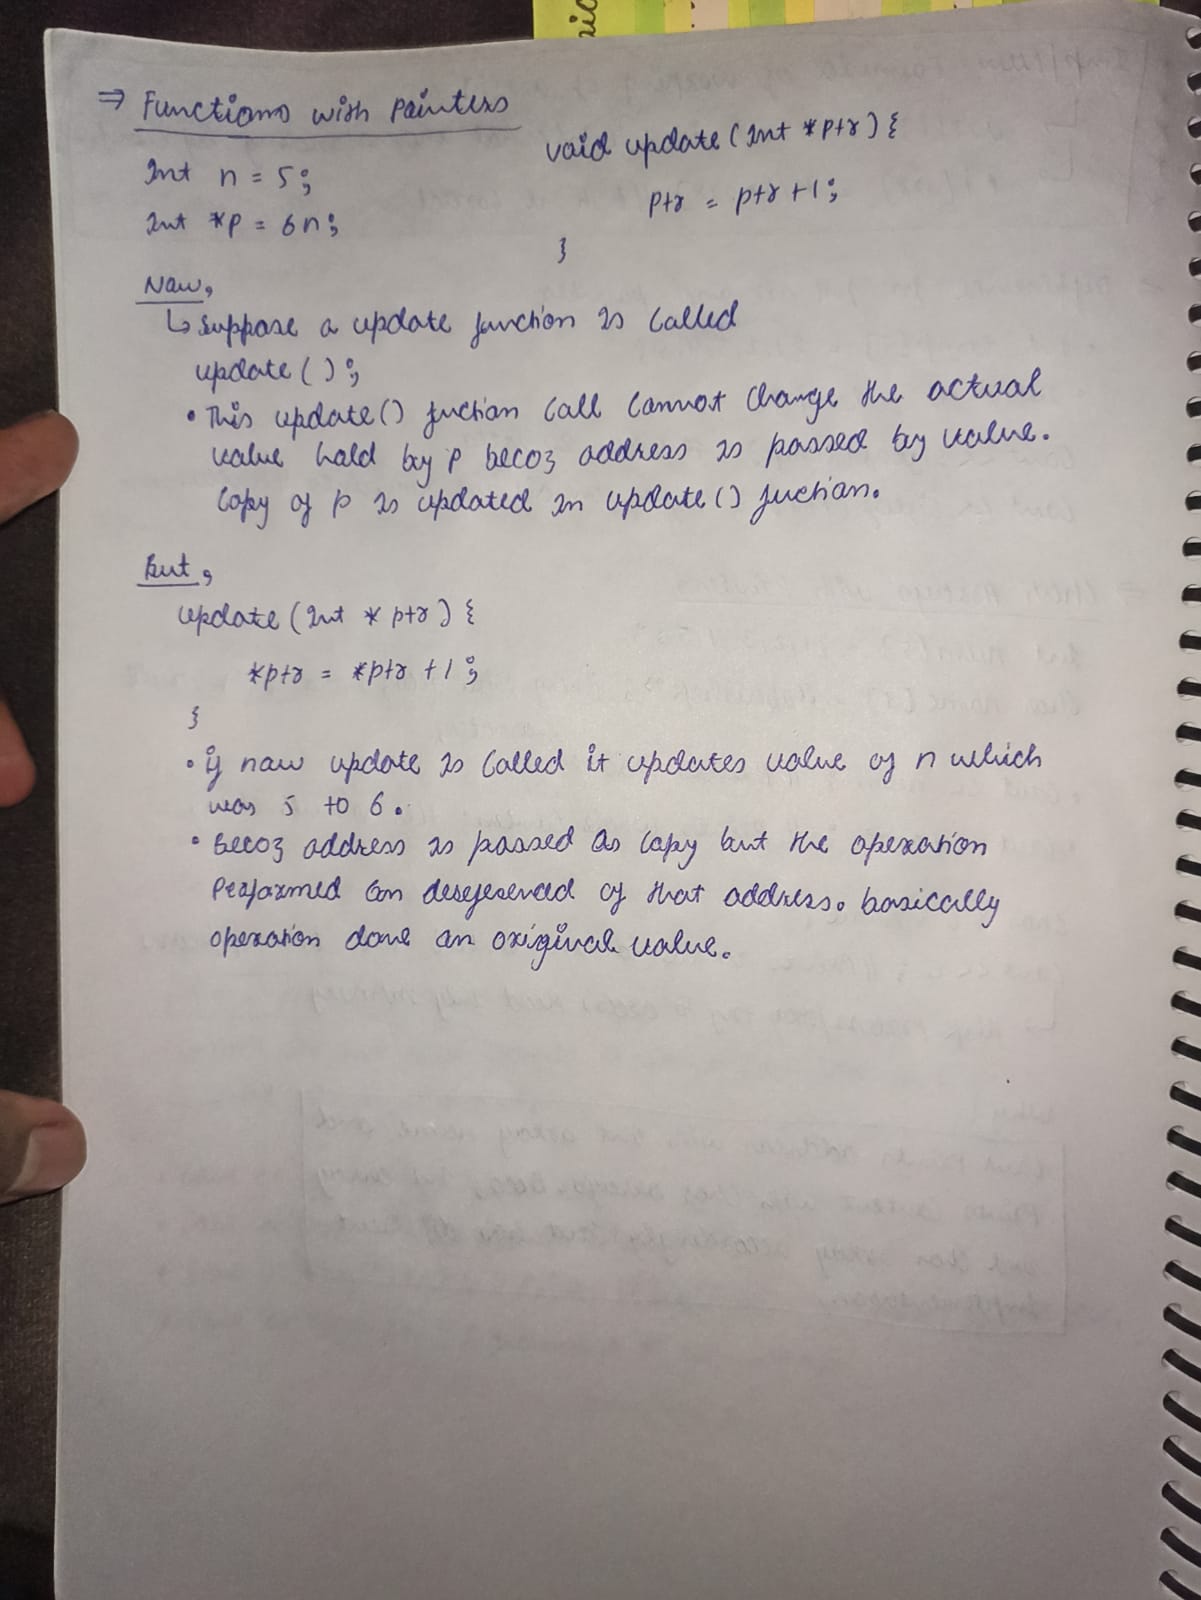 ⇒ Functions with pointers
Int n = 5;
Int *p = &n;
void update (Int *ptr) {
ptr = ptr + 1;
}
Now,
↳ Suppose a update function is called
update ( ) ;
• This update() fuction call cannot change the actual
value hold by p becoz address is passed by value.
Copy of p is updated in update () fuction.
But,
update (Int * ptr) {
*ptr = *ptr + 1 ;
}
• if now update is called it updates value of n which
was 5 to 6.
• Becoz address is passed as copy but the operation
performed on of that address. basically
operation done on original value.